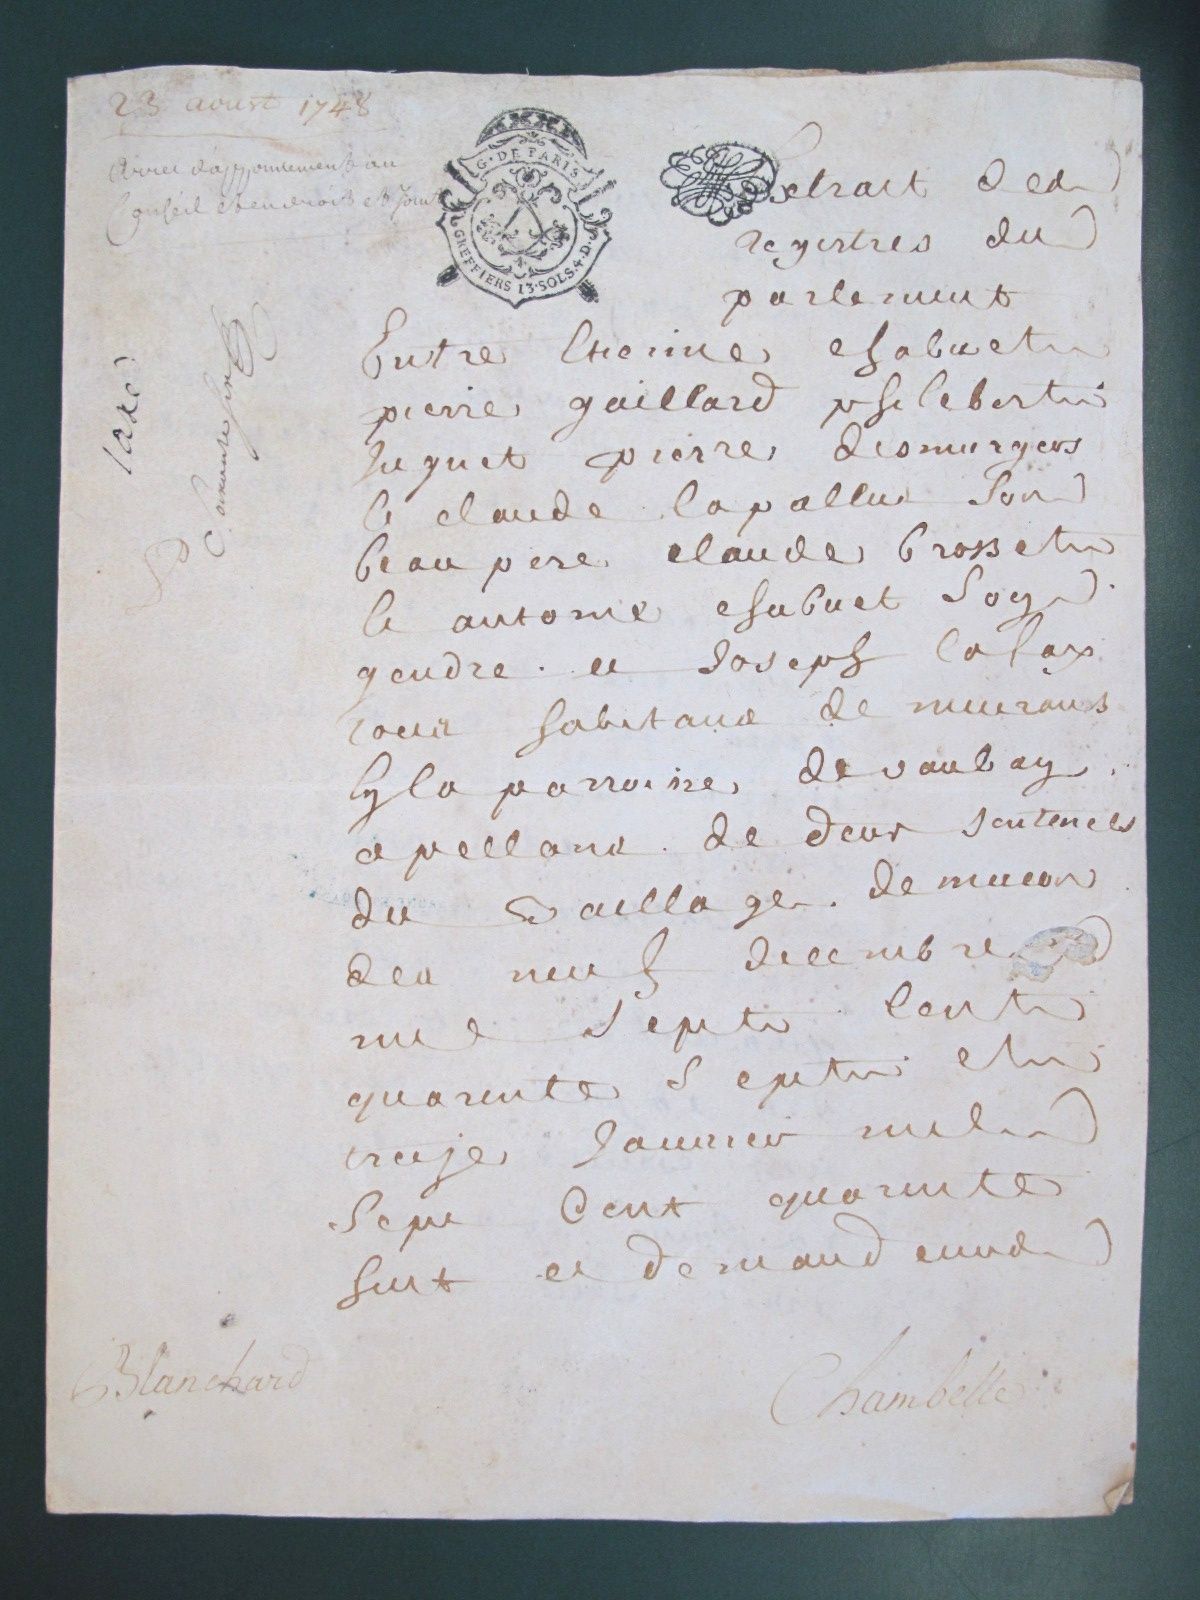 23 aoust 1748
Arrest d'appointement au
Conseil et en droit et Joint
G. DE PARIS
GREFFIERS 13. SOLS. 4. D.
Extrait des
registres du
parlement
Entre Etienne chabuet
pierre gaillard philebert
huguet pierre desmurgers
et claude lapallue Son
beau pere claude brosset
et antoine chabuet Son
gendre et Joseph
tous habitans de
la parroisse de vaubay
apellans de deux sentences
du Baillage de macon
des neuf decembre
mil sept Cent
quarente Sept et
treize Janvier mil
Sept Cent quarente
huit et demandeurs
Blanchard
Chambelle